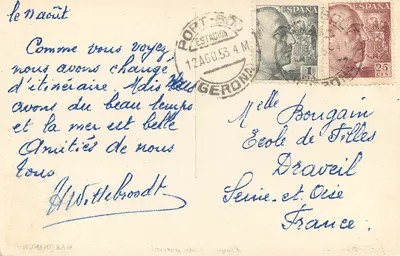 le 13 août
Comme vous voyez,
nous avons changé
d'itinéraire. Mais nous
avons du beau temps
et la mer est belle
Amitiés de nous
tous
AWittebroodt
PORT-BOU
ESTACION
12 AGO.53. 4 M
GERONA
ESPAÑA
ESPAÑA
25 CTS
Melle Bougain
Ecole de Filles
Draveil
Seine-et-Oise
France.